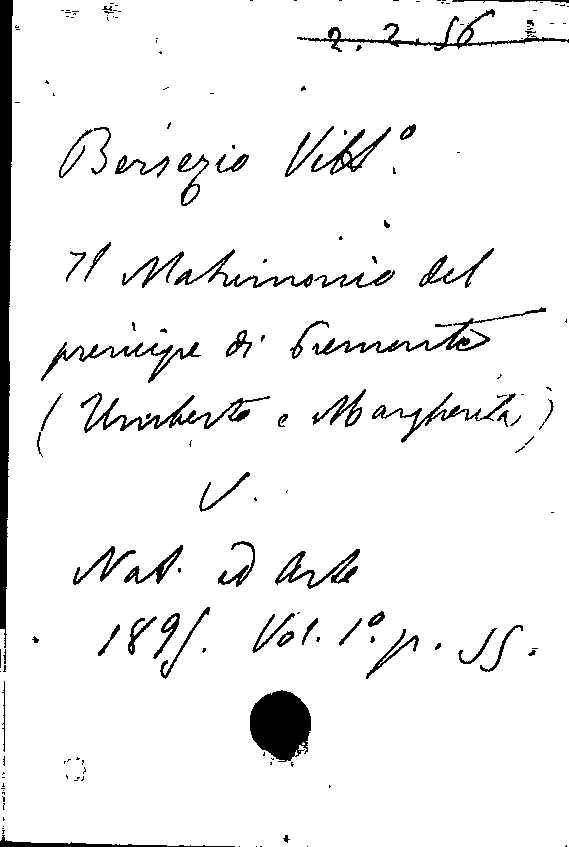 2. 2. 56
Bersezio Vitt.º
Il Matrimonio del
principe di Piemonte
(Umberto e Margherita)
V.
Nat. ed Arte
1895. Vol. 1º. p. 55.